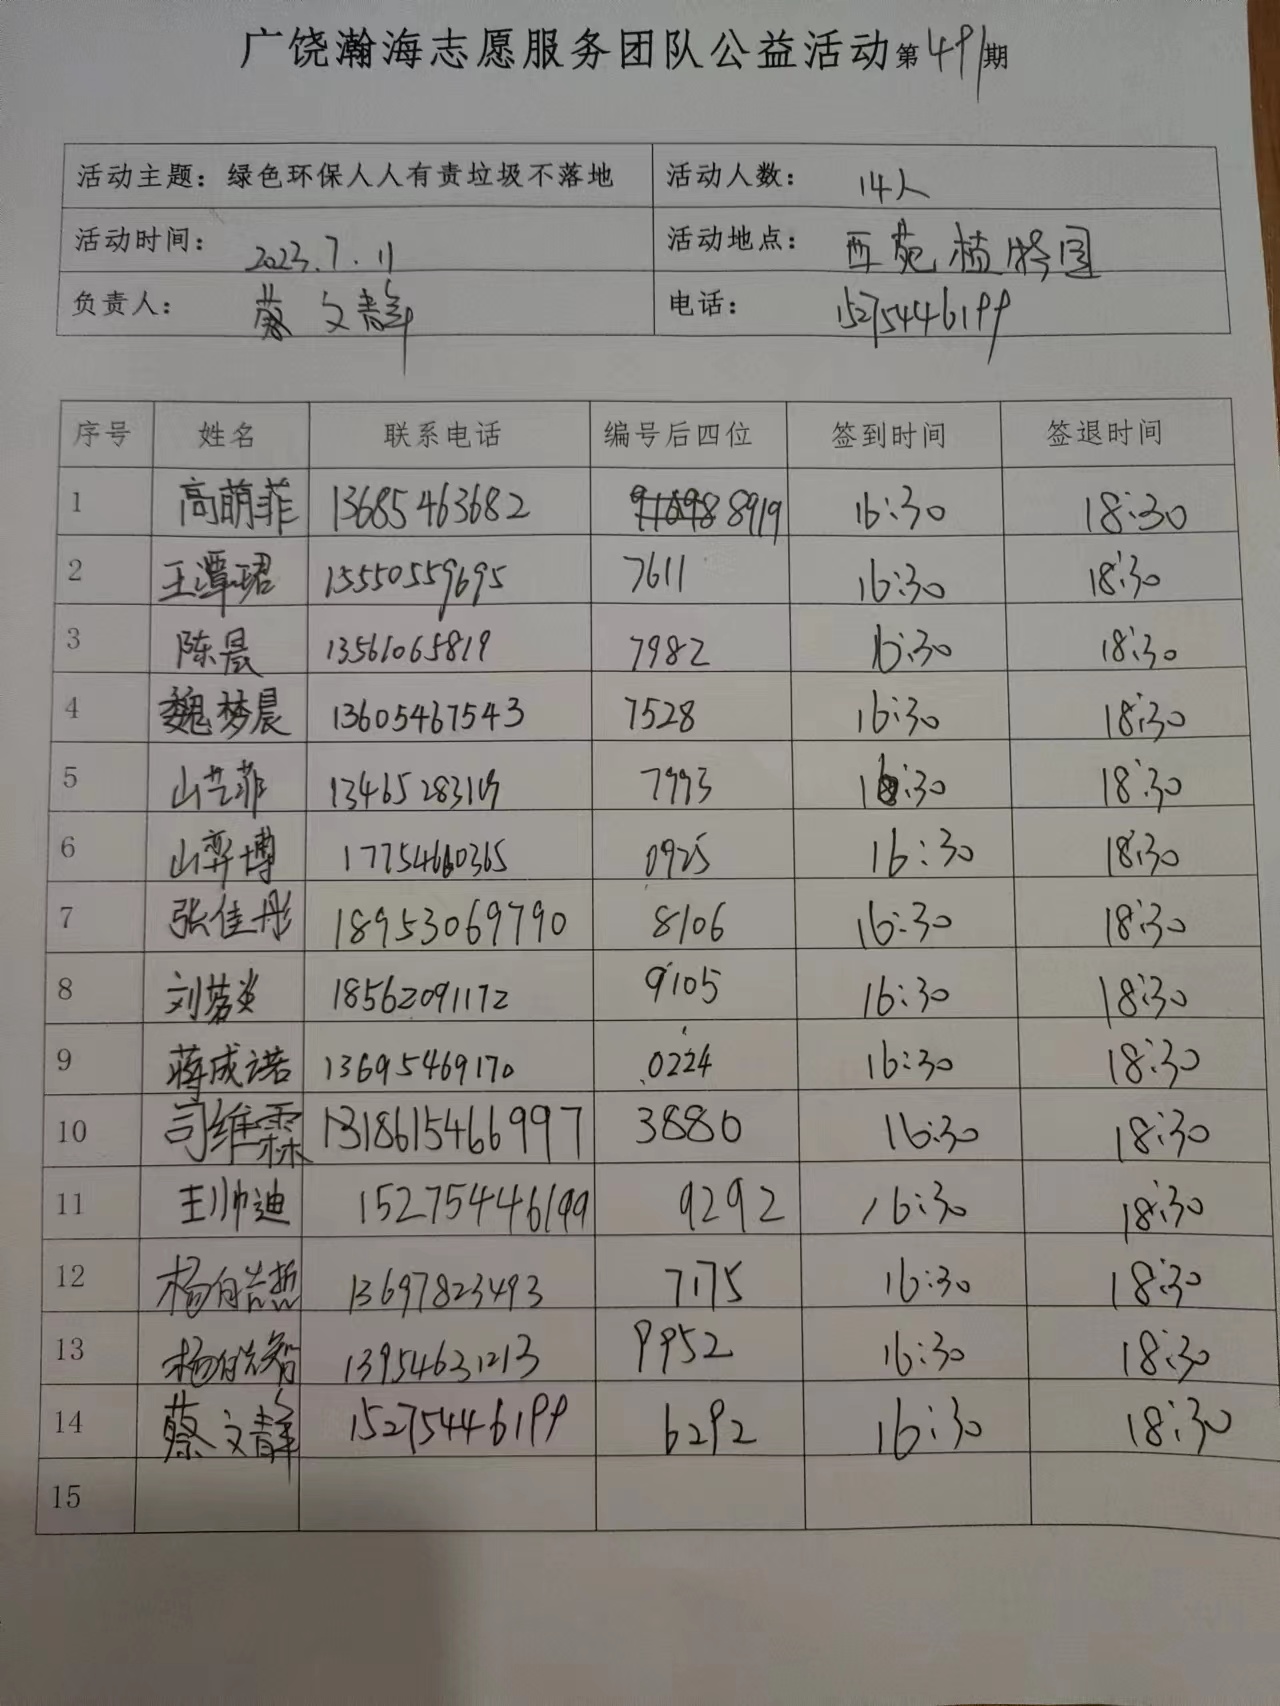 广饶瀚海志愿服务团队公益活动第491期
活动主题：绿色环保人人有责垃圾不落地 活动人数： 14人
活动时间： 2023.7.11 活动地点： 西苑植物园
负责人： 蔡文静 电话： 15275446199
序号 姓名 联系电话 编号后四位 签到时间 签退时间
1 高萌菲 13685463682 8919 16:30 18:30
2 王潭珺 15550559695 7611 16:30 18:30
3 陈晨 13561065819 7982 16:30 18:30
4 魏梦晨 13605467543 7528 16:30 18:30
5 山艺菲 13465283119 7993 16:30 18:30
6 山弈博 17754660365 0925 16:30 18:30
7 张佳彤 18953069790 8106 16:30 18:30
8 刘茗炎 18562091172 9105 16:30 18:30
9 蒋成诺 13695469170 0224 16:30 18:30
10 司维霖 1318615466997 3880 16:30 18:30
11 王帅迪 15275446199 9292 16:30 18:30
12 杨皓哲 13697823493 7175 16:30 18:30
13 杨皓智 13954631213 9952 16:30 18:30
14 蔡文静 15275446199 6292 16:30 18:30
15